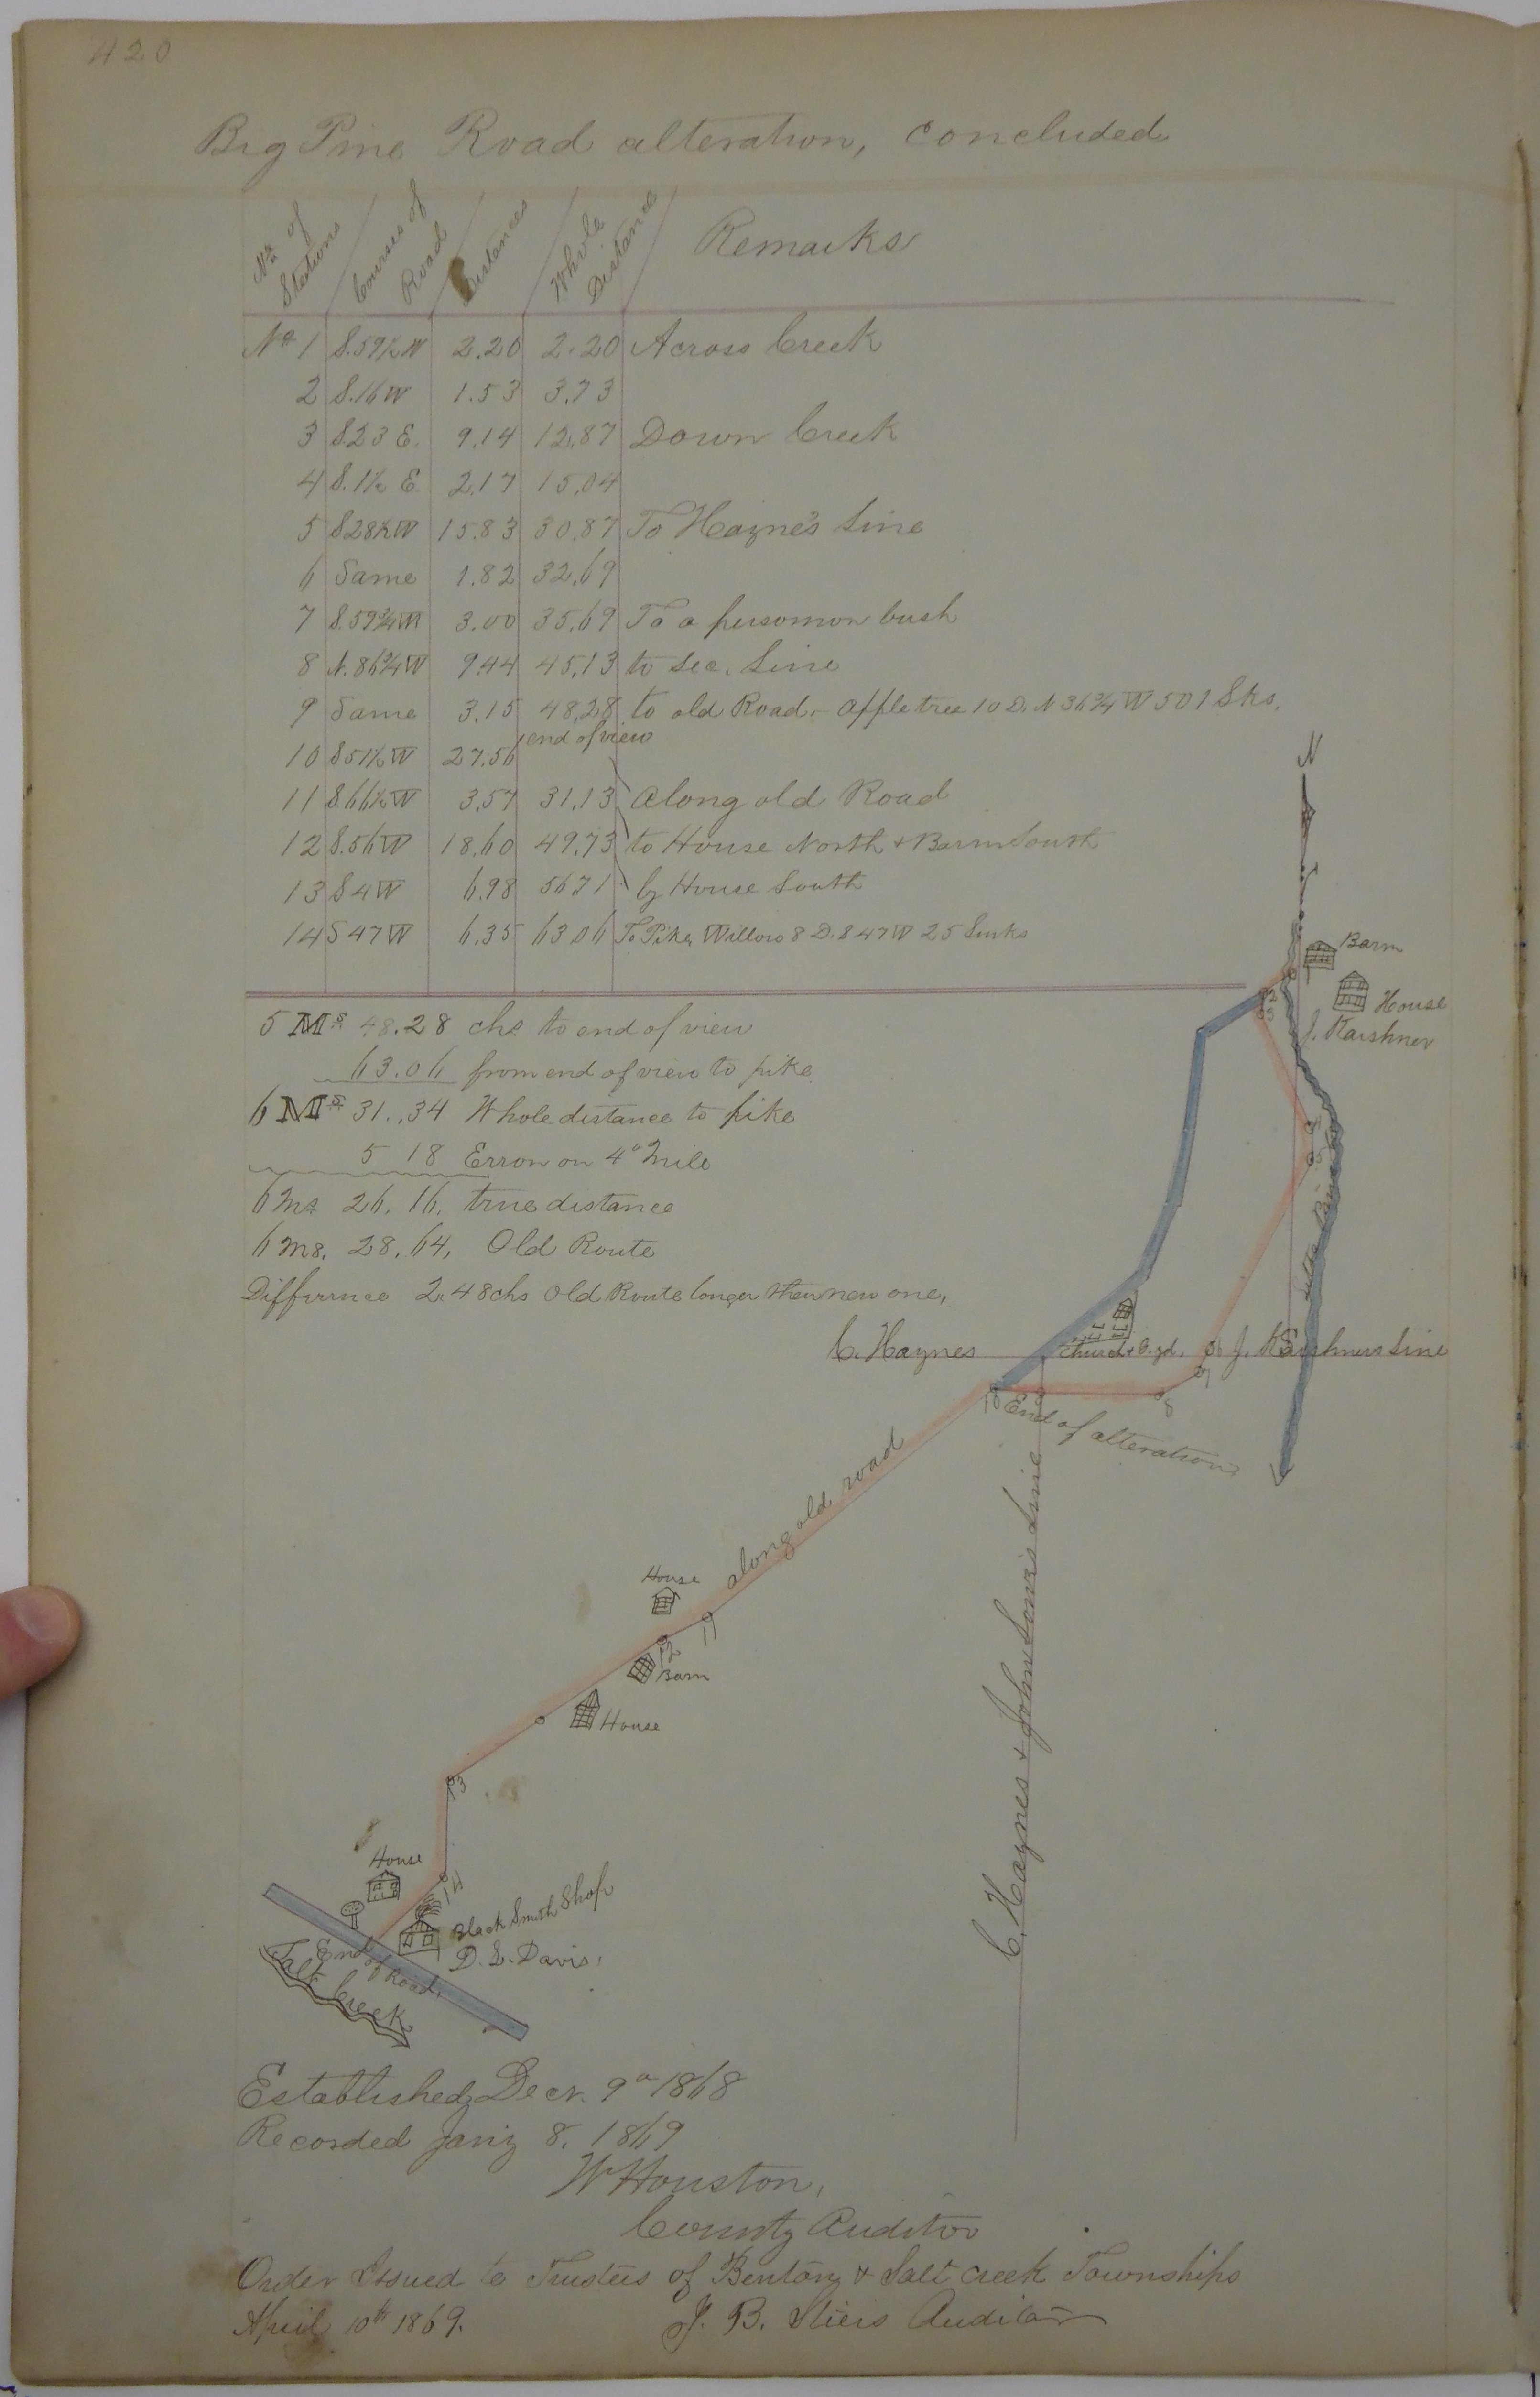 420
Big Pine Road alteration, concluded
No. of Stations
Courses of Road
Distances
Whole Distance
Remarks
No 1 S.59½W 2.20 2.20 Across Creek
2 S.16W 1.53 3.73
3 S23 E. 9.14 12.87 Down Creek
4 S.1½ E. 2.17 15.04
5 S28½W 15.83 30.87 To Hayne's Line
6 Same 1.82 32.69
7 S.59¾W 3.00 35.69 To a persomon bush
8 N.86¾W 9.44 45.13 to Sec. Line
9 Same 3.15 48.28 to old Road,- Appletree 10 D. N 36¾ W 501 Lks.
end of view
10 S51½W 27.56
11 S.66½W 3.57 31.13 Along old Road
12 S.56W 18.60 49.73 to House North & Barn South
13 S4W 6.98 5671 by House South
14 S47W 6.35 63 06 To Pike, Willow 8 D. S 47W 25 Links
5 Ms 48.28 chs to end of view
63.06 from end of view to pike
6 Ms 31.34 Whole distance to pike
5 18 Erron on 4th Mile
6 Ms 26.16. true distance
6 Ms. 28.64, Old Route
Differrnce 2.48chs Old Route longer then new one,
N
Barn
House
J. Karshner
2
3
4
5
Little Pine
C. Haynes
Church & G.yd.
6 J. Karshners Line
7
8
9
10
End of alteration
along old road
House
11
12
Barn
House
13
C. Haynes & John Lowis Line
House
14
Black Smith Shop
D. L. Davis.
End of Road.
Salt Creek
Established Decr. 9th 1868
Recorded Jany 8. 1869
W Houston,
County Auditor
Order Issued to Trustees of Benton & Salt creek Townships
April 10th 1869. J. B. Stiers Auditor